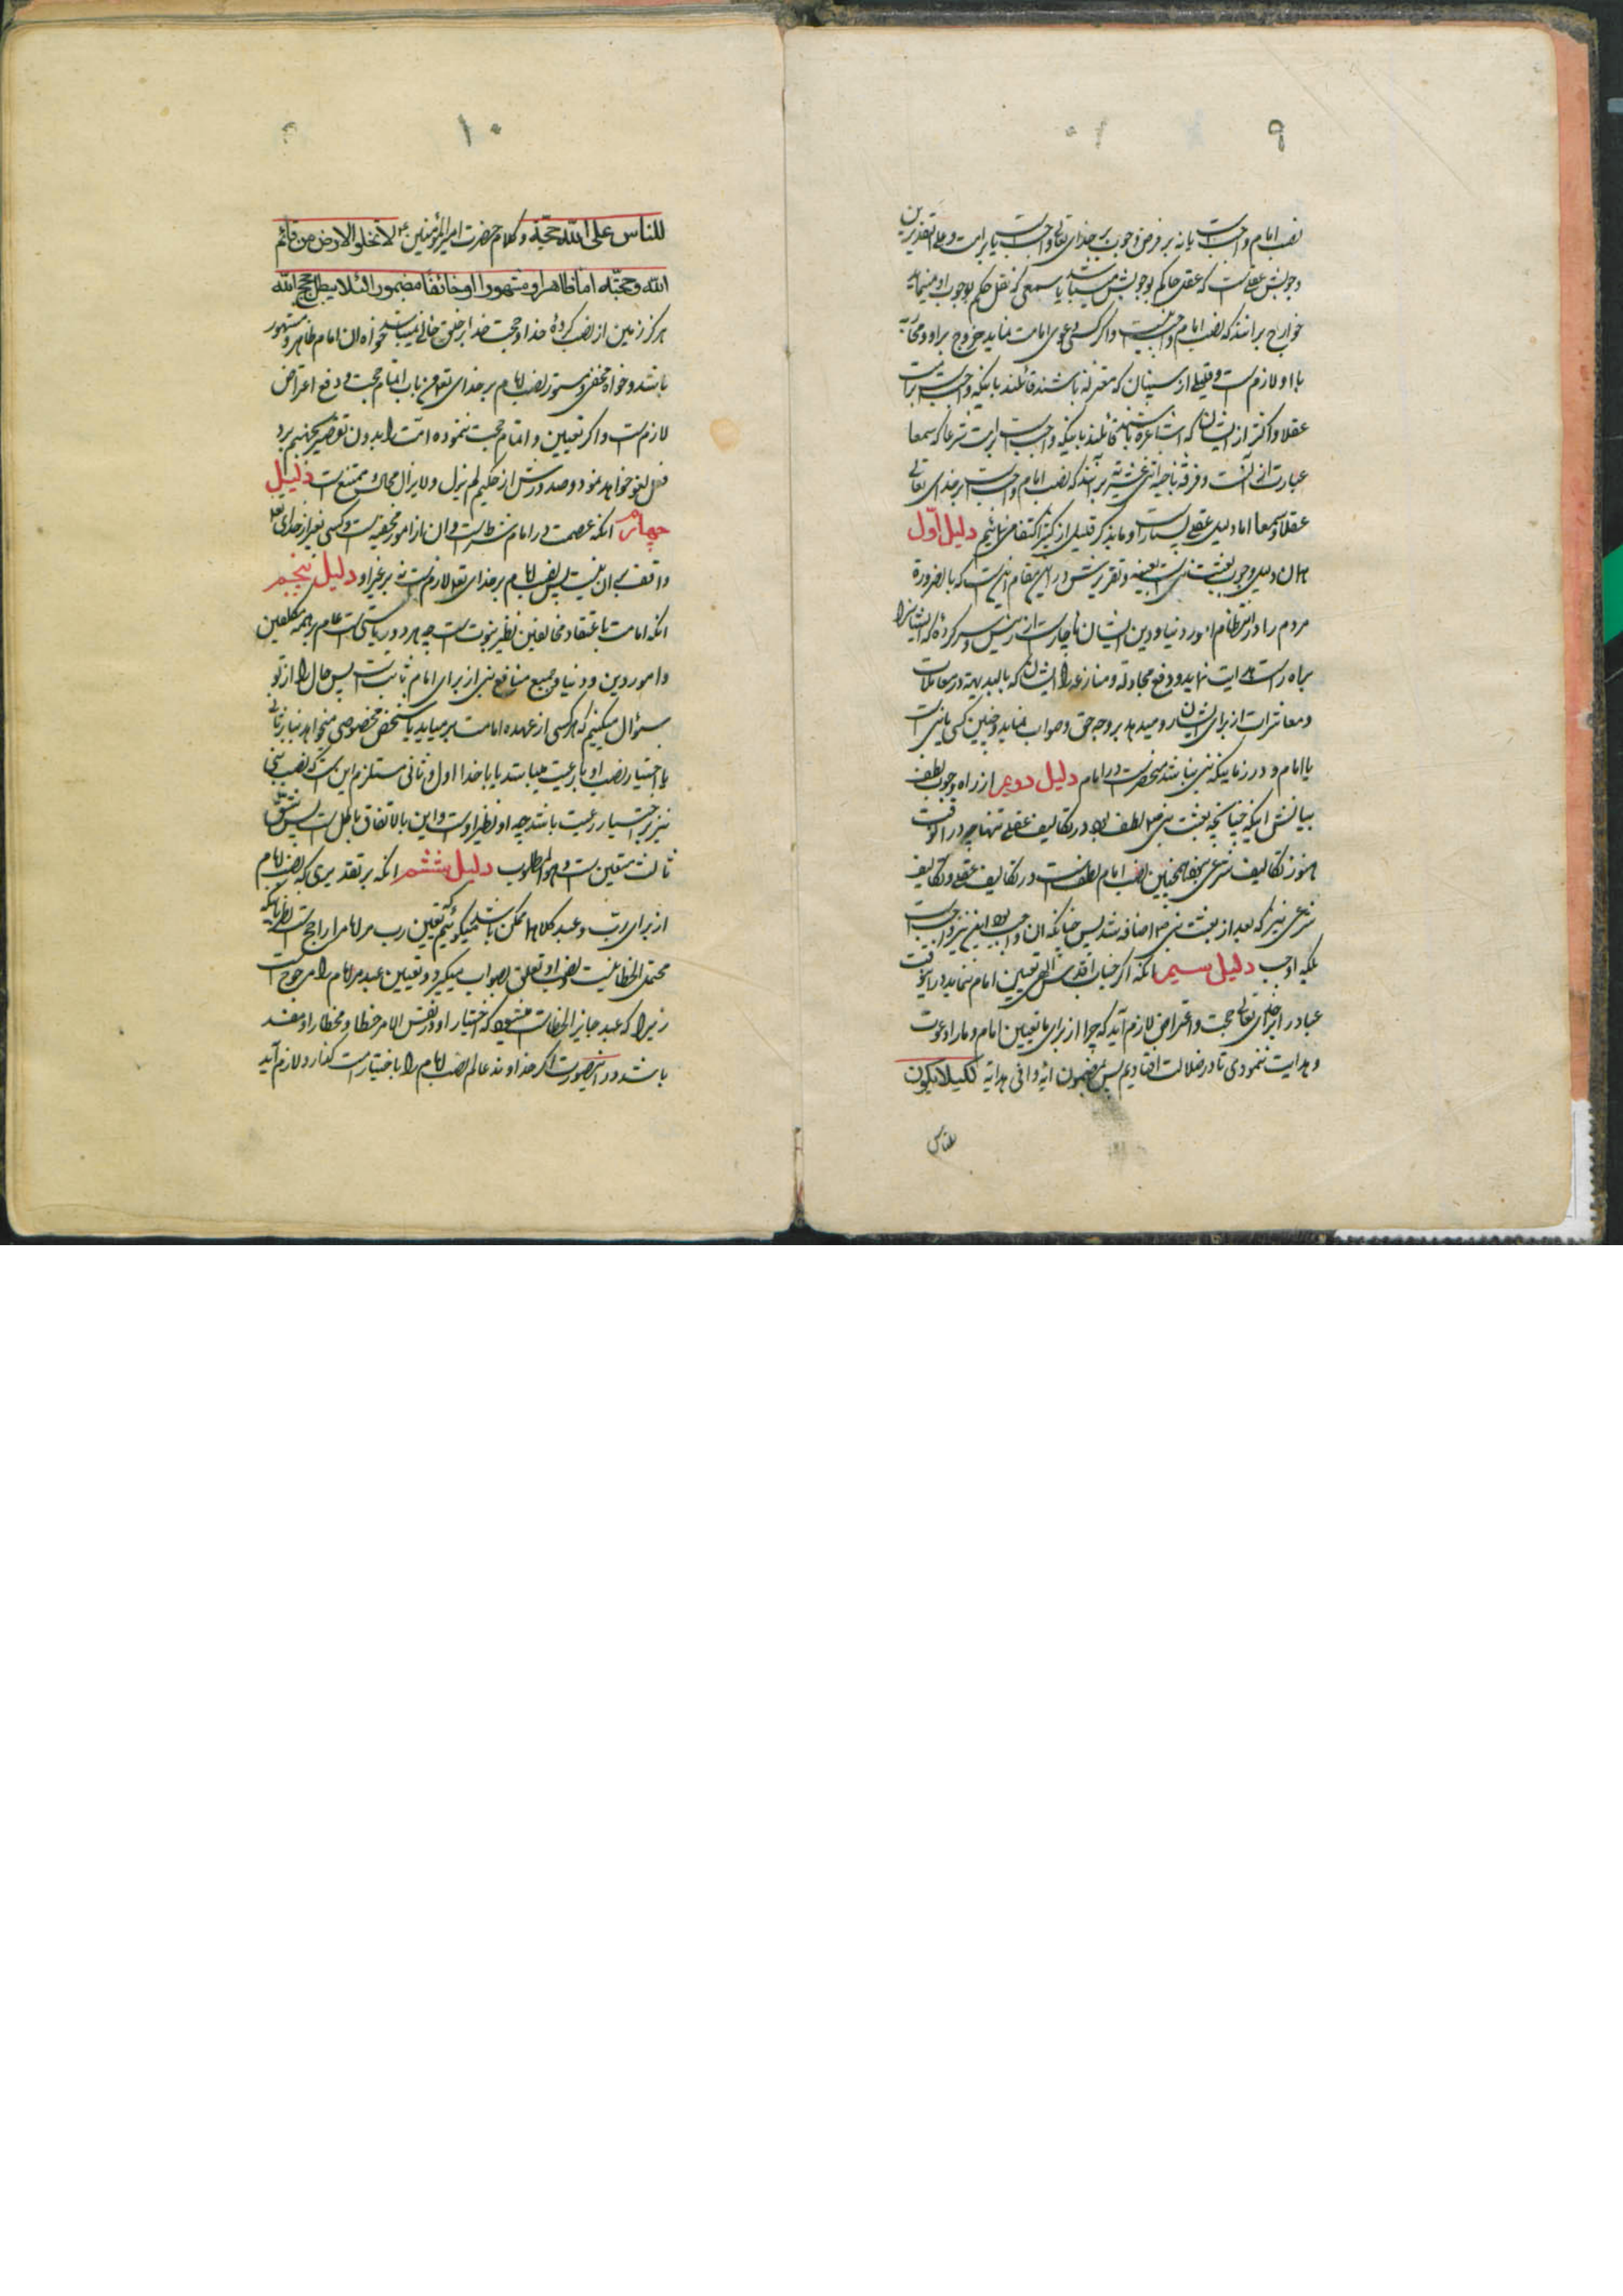 ۹
نصب امام واجبست یا نه بر فرض وجوب بر خدای تعالی واجبست یا بر امت و علی التقدیرین
وجوبش عقلیست که عقل حاکم بوجوبش میباشد یا سمعی که نقل حکم بوجوب او مینماید
خوارج برانند که نصب امام واجب نیست و اگر کسی دعوی امامت نماید خروج بر او و محاربه
با او لازمست و قلیلی از سنیان که معتزله باشند قائلند باینکه واجبست بر امت
عقلا و اکثر از ایشان که اشاعره باشند قائلند باینکه واجبست بر امت شرعا که سمعا
عبارت از آنست و فرقه ناجیه اثنی عشریه برآنند که نصب امام واجبست بر خدای تعالی
عقلا و سمعا اما دلیل عقلی بسیار است و ما بذکر قلیلی از کثیر اکتفا مینمائیم دلیل اول
همان دلیل وجوب بعثت نبی است بعینه و تقریرش در این مقام اینست که بالضروره
مردم را در انتظام امور دنیا و دین ایشان ناچار است از رئیس و سرکرده که ایشانرا
براه راست هدایت نماید و دفع مجادله و منازعه را از ایشان که بالبدیهه در معاملات
و معاشرات از برای ایشان رو میدهد بر وجه حق و صواب نماید و چنین کسی یا نبی است
یا امام و در زمانیکه نبی نباشد منحصر است در امام دلیل دویم از راه وجوب لطف
بیانش اینکه چنانچه بعثت نبی ص لطف بود در تکالیف عقلی تنها چه در انوقت
هنوز تکالیف شرعی نبود همچنین نصب امام لطفست در تکالیف عقلی و تکالیف
شرعی نیز که بعد از بعثت نبی ص اضافه شد پس چنانکه ان واجب بود این نیز واجبست
بلکه اوجب دلیل سیم انکه اگر جناب اقدس الهی تعیین امام ننماید در اینوقت
عباد را بر خدای تعالی حجت و اعتراض لازم آید که چرا از برای ما تعیین امام و ما را دعوت
و هدایت ننمودی تا در ضلالت افتادیم پس بمضمون ایه وافی هدایه لکیلا یکون
للناس
۱۰
للناس علی الله حجة و کلام حضرت امیرالمؤمنین ع لا تخلو الارض من قائم
الله و حجته اما ظاهرا و مشهورا او خائفا مضمورا لئلا یبطل حجج الله
هرگز زمین از نصب کرده خدا و حجت خدا بر خلق خالی نمیباشد خواه ان امام ظاهر و مشهور
باشد و خواه مخفی و مستور نصب امام بر خدای تع از باب اتمام حجت و دفع اعتراض
لازمست و اگر تعیین و اتمام حجت ننموده امت را بدون تقصیر بجهنم برد
فعل لغو خواهد نمود و صدورش از حکیم لم یزل و لا یزال محال و ممتنع است دلیل
چهارم انکه عصمت در امام شرطست و ان از امور مخفیه است و کسی بغیر از خدای تع
واقف بران نیست پس نصب امام بر خدای تع لازمست نه بر غیر او دلیل پنجم
انکه امامت باعتقاد مخالفین نظیر نبوت است چه هر دو ریاستی است عام بر همه مکلفین
و امور دین و دنیا و جمیع منافع نبی از برای امام ثابتست پس حال ما از تو
سؤال میکنیم که هر کسی از عهده امامت بر میاید یا شخص مخصوصی میخواهد بنا بر ثانی
یا اختیار نصب او با رعیت میباشد یا با خدا اول و ثانی مستلزم اینست که نصب نبی
نیز باختیار رعیت باشد چه او نظیر اوست و این بالاتفاق باطل است پس شق
ثالث متعین است و هو المطلوب دلیل ششم انکه بر تقدیری که نصب امام
از برای رب و عبد کلاهما ممکن باشد میگوئیم که تعیین رب مر امام را راجح است نظر باینکه
محتمل الخطا نیست نصب او تعلق بصواب میگیرد و تعیین عبد مر امام را مرجوح است
زیرا که عبد جایز الخطاست میشود که اختیار او در نفس الامر خطا و مختار او مفسد
باشد و در اینصورت اگر خداوند عالم نصب امام را باختیار امت گذارد لازم آید